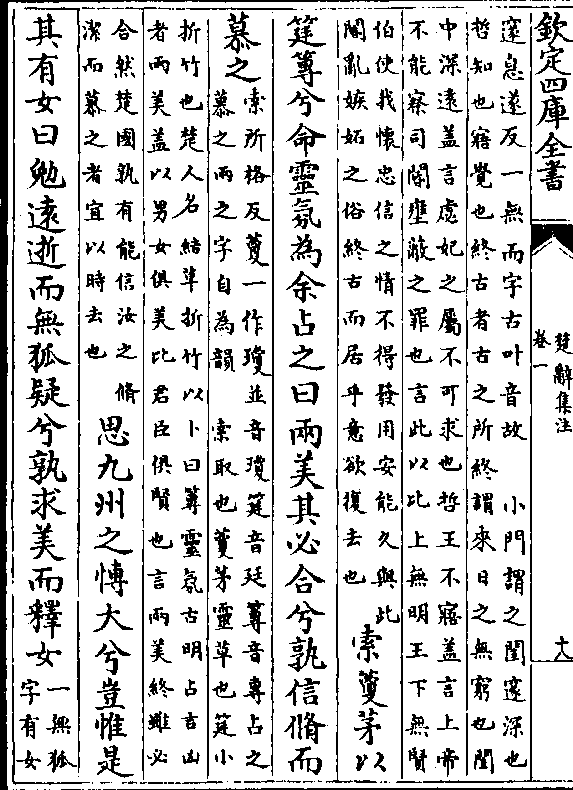 欽定四庫全書
楚辭集注
卷一
十八
邃息遂反一無而字古叶音故 小門謂之閨邃深也
哲知也寤覺也終古者古之所終謂來日之無窮也閨
中深遠蓋言虙妃之屬不可求也哲王不寤蓋言上帝
不能察司閽壅蔽之罪也言此以比上無明王下無賢
伯使我懷忠信之情不得發用安能久與此
闇亂嫉妬之俗終古而居乎意欲復去也
索藑茅以
筳篿兮命靈氛為余占之曰兩美其必合兮孰信脩而
慕之
索所格反藑一作瓊並音瓊筳音廷篿音專占之
慕之兩之字自為韻 索取也藑茅靈草也筳小
折竹也楚人名結草折竹以卜曰篿靈氛古明占吉凶
者兩美蓋以男女俱美比君臣俱賢也言兩美終雖必
合然楚國孰有能信汝之脩
潔而慕之者宜以時去也
思九州之愽大兮豈惟是
其有女曰勉遠逝而無狐疑兮孰求美而釋女
一無狐
字有女